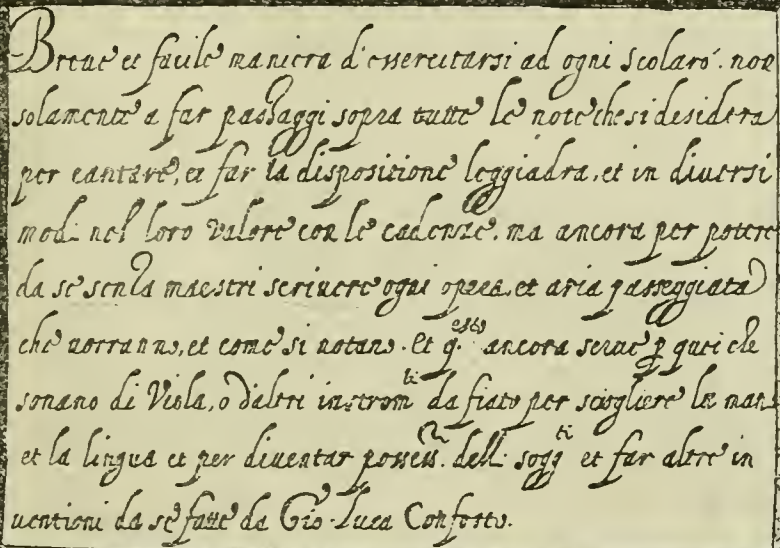 Breue et facile maniera d'essercitarsi ad ogni scolaro. non
solamente a far passaggi sopra tutte le note che si desidera
per cantare, et far la dispositione leggiadra, et in diuersi
modi nel loro valore con le cadenze. ma ancora per potere
da se senza maestri scriuere ogni opera, et aria passeggiata
che uorranno, et come si notano. et q.esto ancora serue p quei che
sonano di Viola, o d'altri instromti da fiato per sciogliere la man
et la lingua et per diuentar possess.ri dell. soggti et far altre in
uentioni da se fatte da Gio. Luca Conforto.